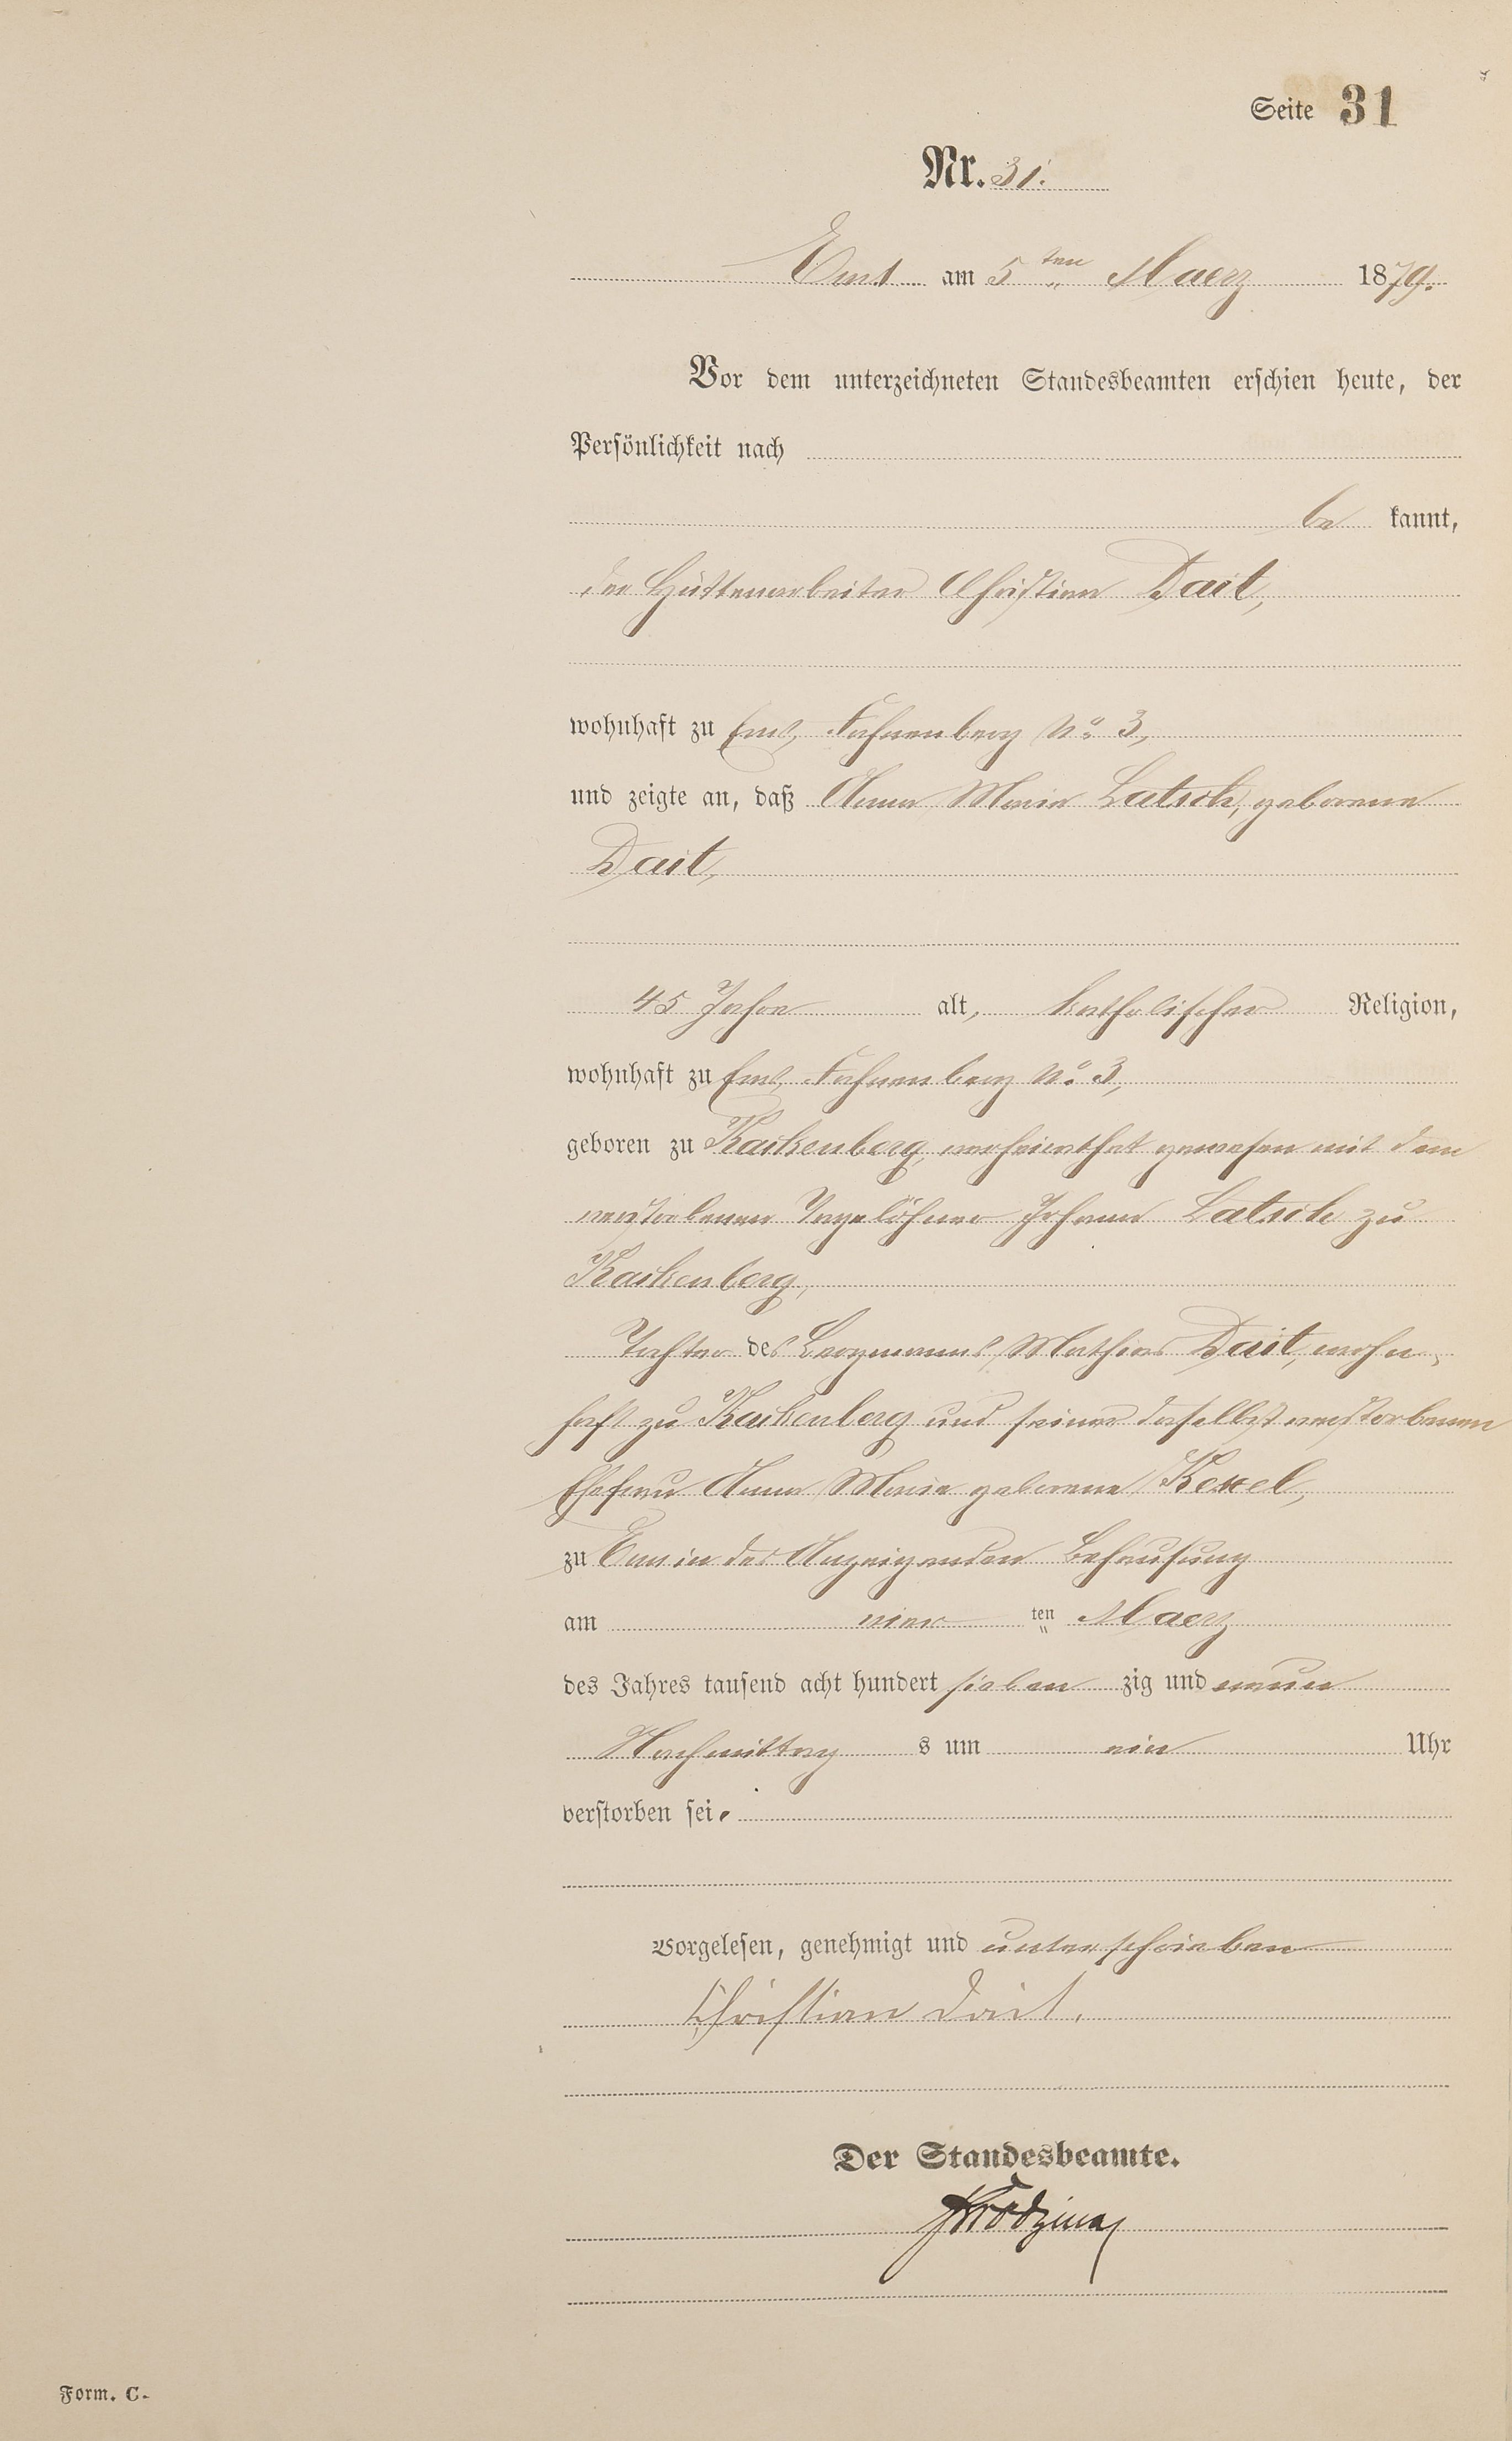 Seite 31
Nr. 31.
Ems am 5ten Maerz 1879.
Vor dem unterzeichneten Standesbeamten erschien heute, der
Persönlichkeit nach
be kannt,
der Hüttenarbeiter Christian Dait,
wohnhaft zu Ems, Fahnenberg No. 3,
und zeigte an, daß Anna Maria Latsch, geborene
Dait,
45 Jahre alt, katholischer Religion,
wohnhaft zu Ems, Fahnenberg No. 3,
geboren zu Kackenberg, verheirathet gewesen mit dem
verstorbenen Tagelöhner Johann Latsch zu
Kackenberg,
Tochter des Bergmanns Mathias Dait, wohn-
haft zu Kackenberg und seiner daselbst verstorbenen
Ehefrau Anna Maria geborene
zu Ems in des Anzeigenden Behausung
am vier ten Maerz
des Jahres tausend acht hundert sieben zig und neun
Nachmittag s um ein Uhr
verstorben sei.
Vorgelesen, genehmigt und unterschrieben
Christian Dait.
Der Standesbeamte.
Form. C.